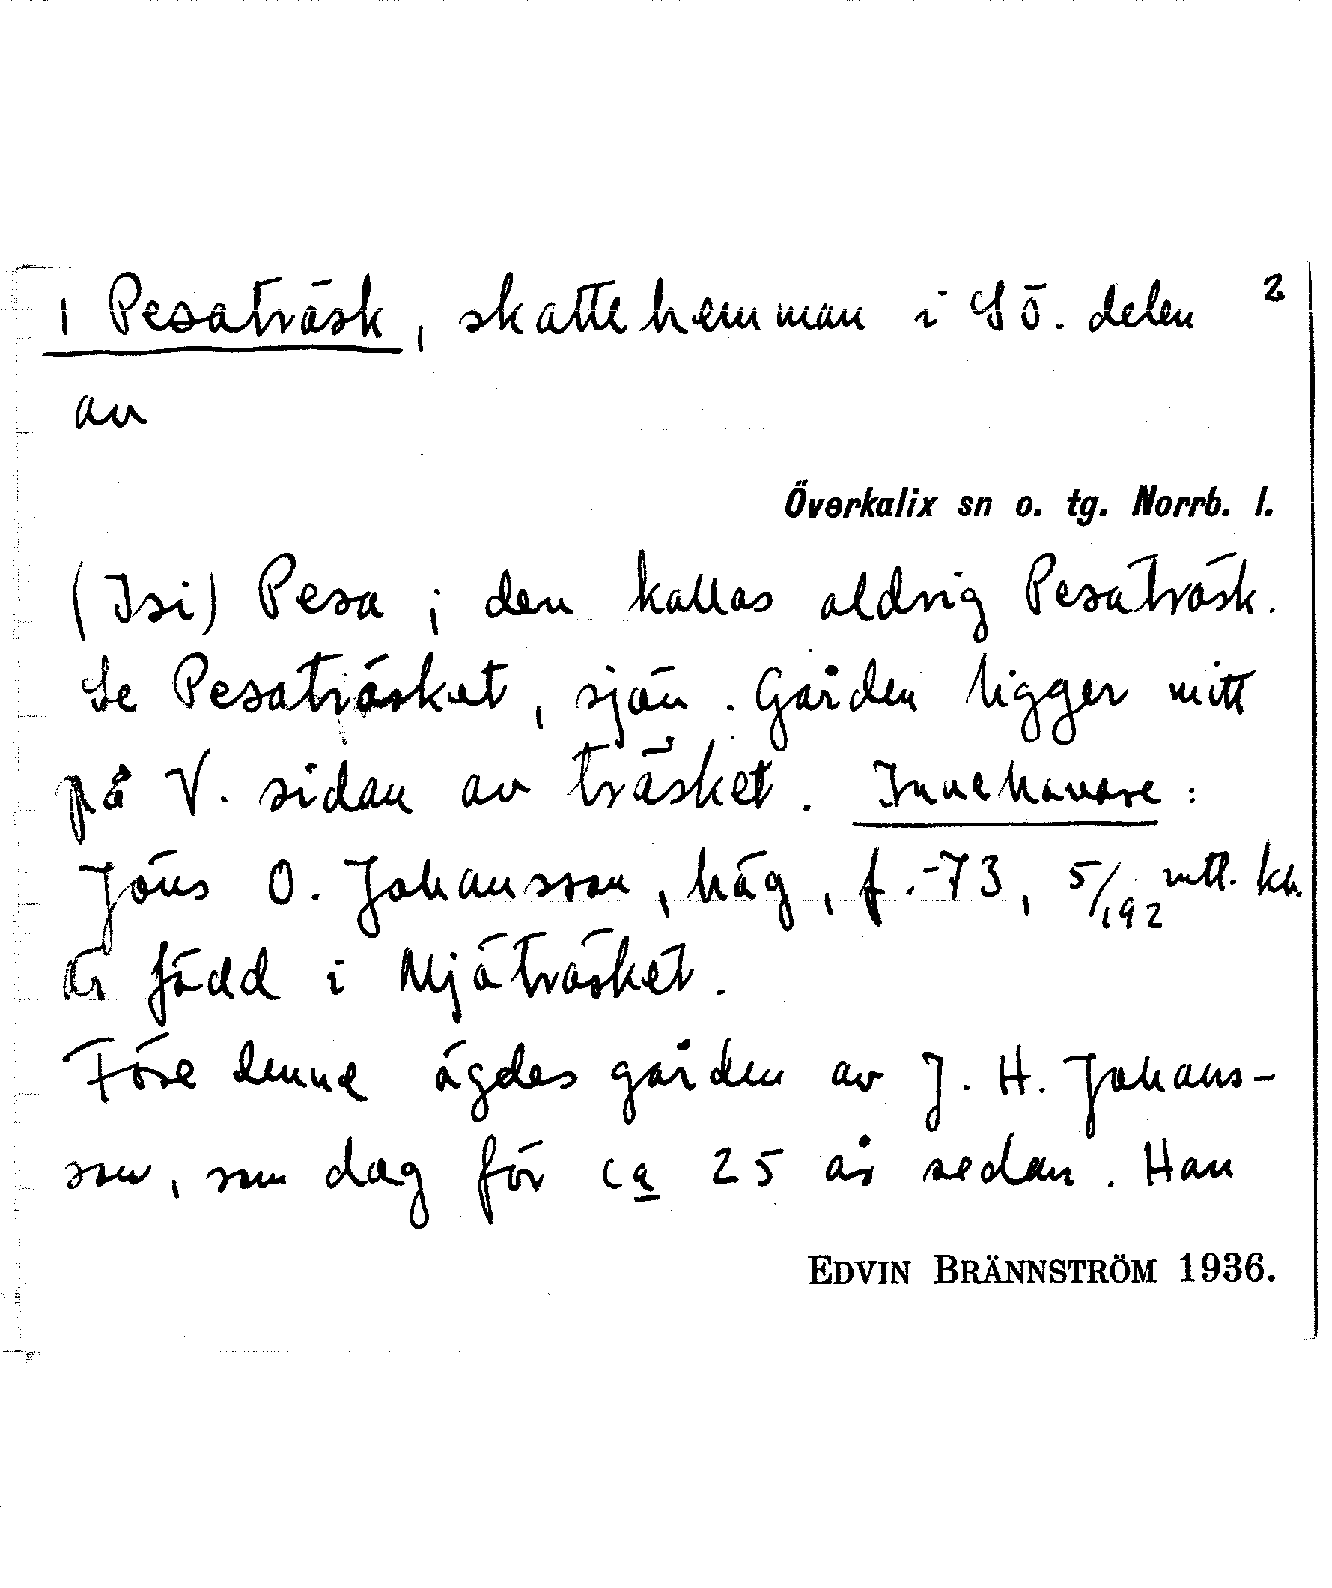 1 Pesaträsk, skattehemman i SÖ. delen 2
av
Överkalix sn o. tg. Norrb. l.
(Isi) Pesa ; den kallas aldrig Pesaträsk.
Se Pesaträsket, sjön. Gården ligger mitt
på V. sidan av träsket. Innehavare :
Jöns O. Johansson, häg, f.-73, 5/192 mtl. kh.
är född i Mjöträsket.
Före denne ägdes gården av J. H. Johans-
son, som dog för ca 25 år sedan. Han
EDVIN BRÄNNSTRÖM 1936.